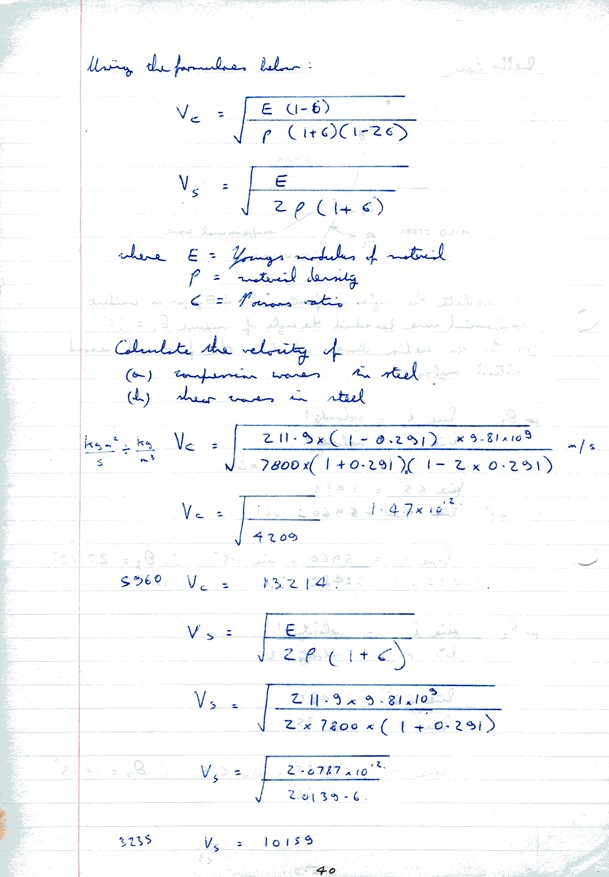 Using the formulaes below:
Vc = √ E (1-6) / ρ (1+6)(1-26)
Vs = √ E / 2ρ (1+6)
where E = Youngs modulus of material
ρ = material density
6 = Poisons ratio
Calculate the velocity of
(a) compression waves in steel.
(b) shear waves in steel
kg m² / s ÷ kg / m³ Vc = √ 211.9 x (1 - 0.291) x 9.81x10⁹ / 7800 x (1+0.291)(1 - 2 x 0.291) m/s
Vc = √ 1.47 x 10¹² / 4209
5960 Vc = 13214.
Vs = √ E / 2ρ (1+6)
Vs = √ 211.9 x 9.81x10⁹ / 2 x 7800 x (1 + 0.291)
Vs = √ 2.0787x10¹² / 20139.6.
3235 Vs = 10159
40